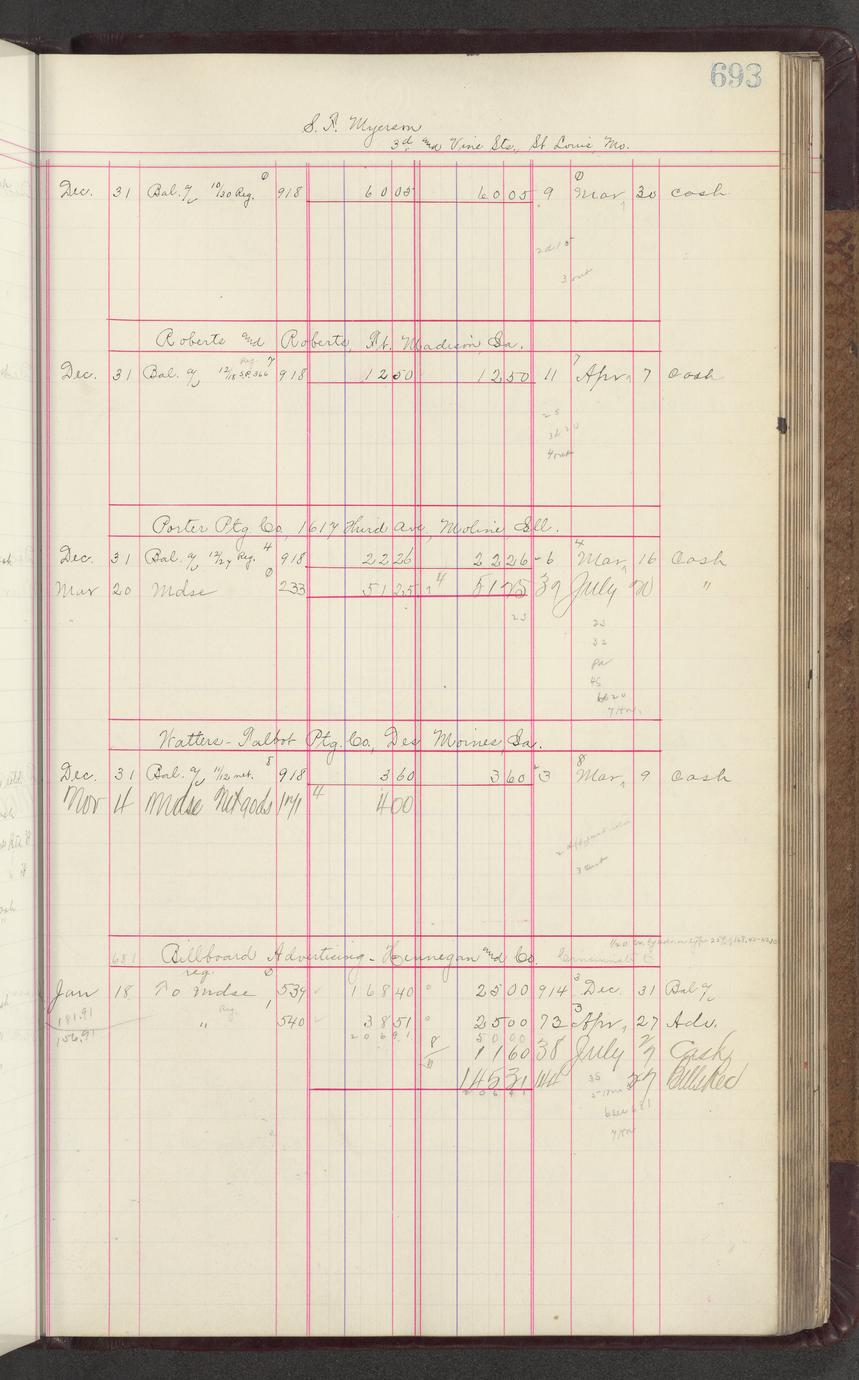 693
S. F. Myerson
3d and Vine Sts., St Louis, Mo.
Dec. 31 Bal. 10/30 Reg. 0 918 60 05 60 05 9 0 Mar, 30 Cash
3 out
Roberts and Roberts, Ft. Madison, Ia.
Dec. 31 Bal. 12/18 S.P. 366 7 918 12 50 12 50 11 7 Apr, 7 Cash
25
3d 20
4 out
Porter Ptg Co, 1617 Third Ave, Moline Ill.
Dec. 31 Bal. 12/27 Reg. 4 918 22 26 22 26 6 4 Mar, 16 Cash
Mar 20 Mdse 0 233 51 25 4 51 25 39 July 20 "
23
23
32
45
Watters-Talbot Ptg. Co, Des Moines, Ia.
Dec. 31 Bal. 11/12 net. 8 918 3 60 3 60 3 8 Mar, 9 Cash
Nov 4 Mdse Net goods 4 4 00
3 out
681 Billboard Advertising - Hennegan and Co. Cincinnati O
reg.
Jan 18 To Mdse 0 539 168 40 0 25 00 914 3 Dec. 31 Bal
181.91
" Reg. 1 540 38 51 0 25 00 73 3 Apr, 27 Adv.
156.91
206 91 50 00
8/11 11 60 38 July 7 Cash
145 31 144 27 Bills Rec
206 91
35
681